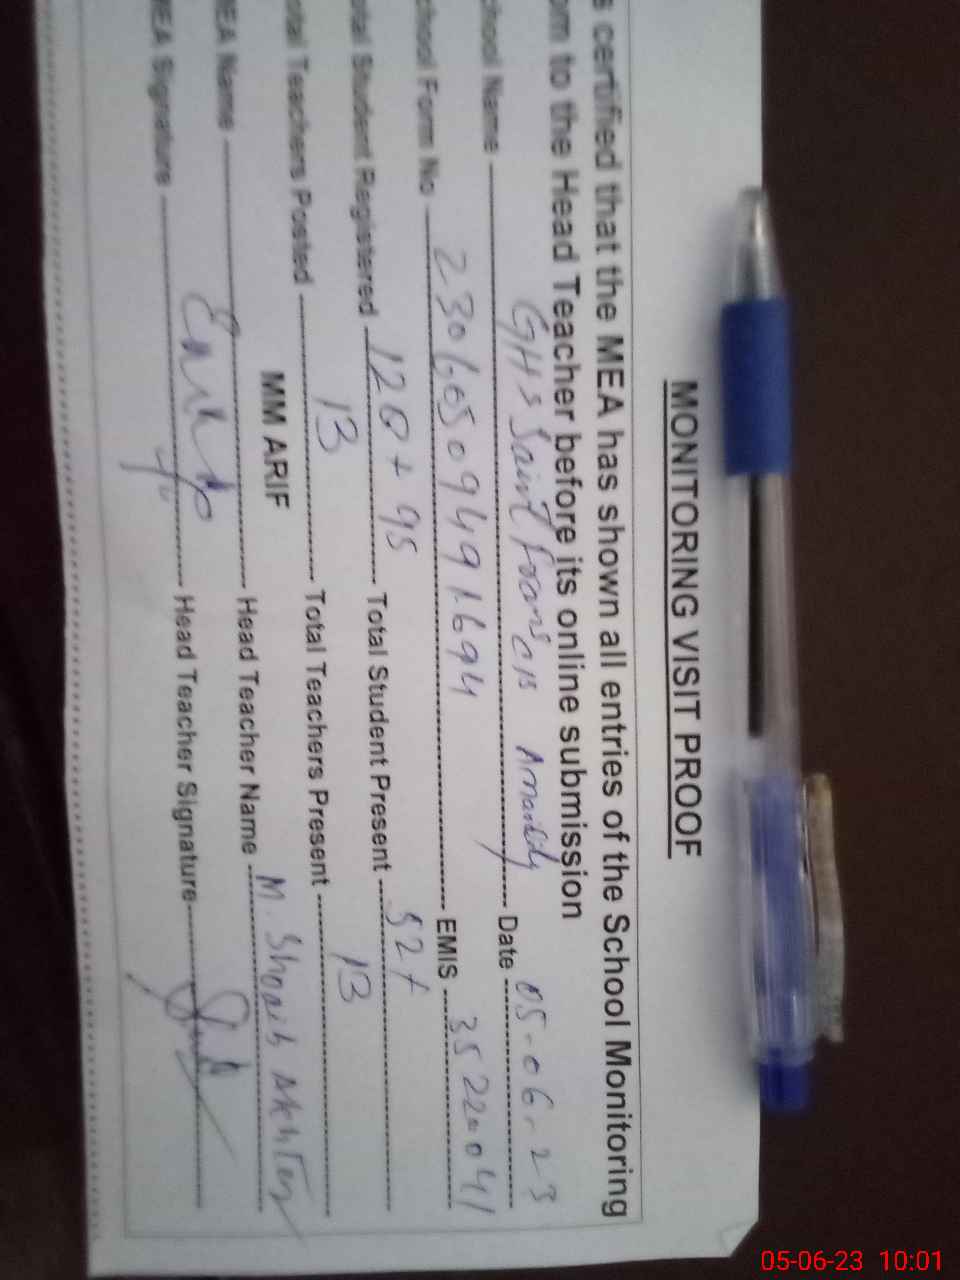 MONITORING VISIT PROOF
s certified that the MEA has shown all entries of the School Monitoring
om to the Head Teacher before its online submission
chool Name GHS Saint Date 05-06-23
chool Form No EMIS 35220041
otal Student Registered 120+95 Total Student Present
otal Teachers Posted 13 Total Teachers Present 13
MEA Name MM ARIF Head Teacher Name M. Shoaib Akhter
MEA Signature Head Teacher Signature
05-06-23 10:01